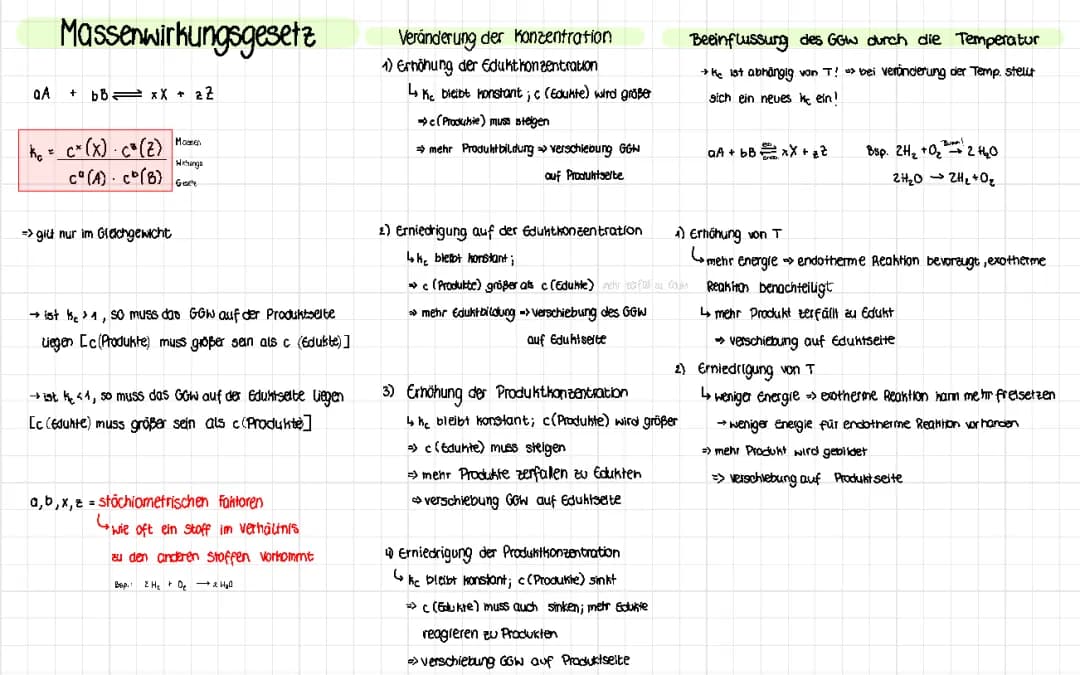 Massenwirkungsgesetz
aA + bB ⇌ xX + zZ
Kc = cˣ(X) · cᶻ(Z)
cᵃ(A) · cᵇ(B)
Massen
Wirkungs
Gesetz
=> gilt nur im Gleichgewicht
→ ist Kc > 1, so muss das GGW auf der Produktseite
liegen [c(Produkte) muss größer sein als c (Edukte)]
→ ist Kc < 1, so muss das GGW auf der Eduktseite liegen
[c (Edukte) muss größer sein als c(Produkte)]
a,b,x,z = stöchiometrischen Faktoren
↳ wie oft ein Stoff im Verhältnis
zu den anderen Stoffen vorkommt
Bsp.: 2 H₂ + O₂ → 2 H₂O
Veränderung der Konzentration
1) Erhöhung der Eduktkonzentration
↳ Kc bleibt konstant; c (Edukte) wird größer
⇒ c(Produkte) muss steigen
⇒ mehr Produktbildung ⇒ verschiebung GGW
auf Produktseite
2) Erniedrigung auf der Eduktkonzentration
↳ Kc bleibt konstant;
⇒ c (Produkte) größer als c (Edukte)
⇒ mehr Eduktbildung ⇒ verschiebung des GGW
auf Eduktseite
3) Erhöhung der Produktkonzentration
↳ Kc bleibt konstant; c(Produkte) wird größer
⇒ c (Edukte) muss steigen
⇒ mehr Produkte zerfallen zu Edukten
⇒ verschiebung GGW auf Eduktseite
4) Erniedrigung der Produktkonzentration
↳ Kc bleibt konstant; c (Produkte) sinkt
⇒ c (Edukte) muss auch sinken; mehr Edukte
reagieren zu Produkten
⇒ verschiebung GGW auf Produktseite
Beeinflussung des GGW durch die Temperatur
→ Kc ist abhängig von T! ⇒ bei veränderung der Temp. stellt
sich ein neues Kc ein!
aA + bB ⇌ xX + zZ
Bsp. 2H₂ + O₂ → 2 H₂O
2H₂O → 2H₂ + O₂
1) Erhöhung von T
↳ mehr Energie ⇒ endotherme Reaktion bevorzugt, exotherme
Reaktion benachteiligt
↳ mehr Produkt zerfällt zu Edukt
⇒ verschiebung auf Eduktseite
2) Erniedrigung von T
↳ weniger Energie ⇒ exotherme Reaktion kann mehr freisetzen
→ weniger Energie für endotherme Reaktion vorhanden
⇒ mehr Produkt wird gebildet
⇒ verschiebung auf Produktseite